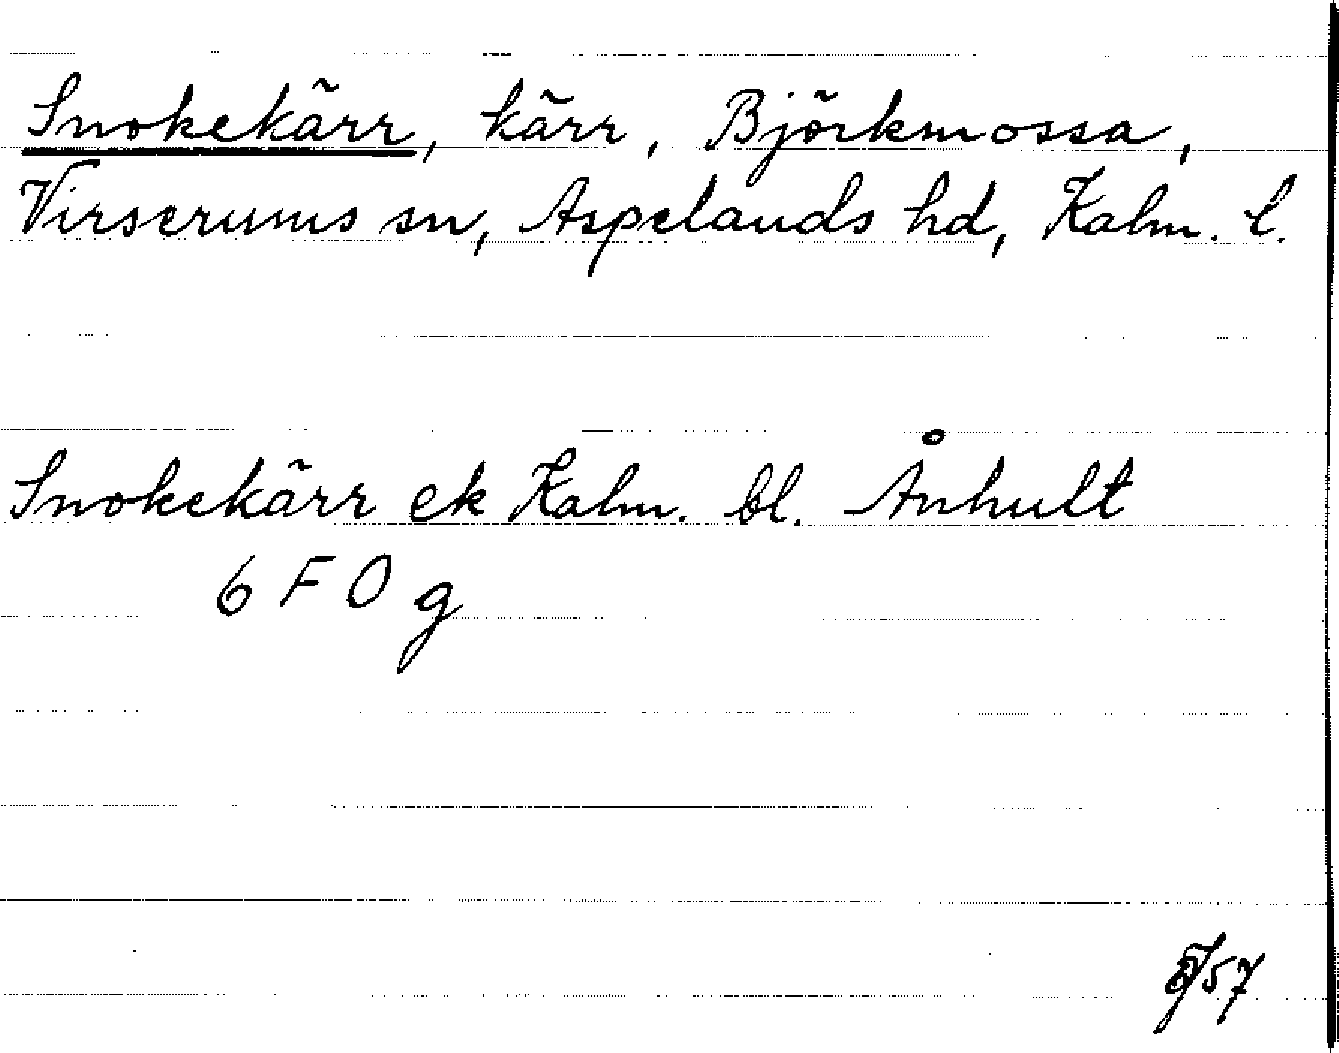 Snokekärr, kärr, Björkmossa,
Virserums sn, Aspelands hd, Kalm. l.
Snokekärr ek Kalm. bl. Ånhult
6 F O g
57